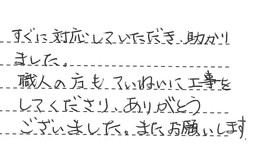 すぐに対応していただき、助かり
ました。
職人の方もていねいに工事を
してくださり、ありがとう
ございました。またお願いします